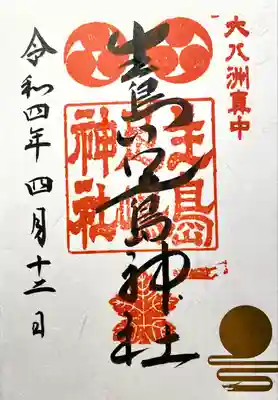 大八洲真中
生島足島神社
生島
神社
令和四年 四月十二日